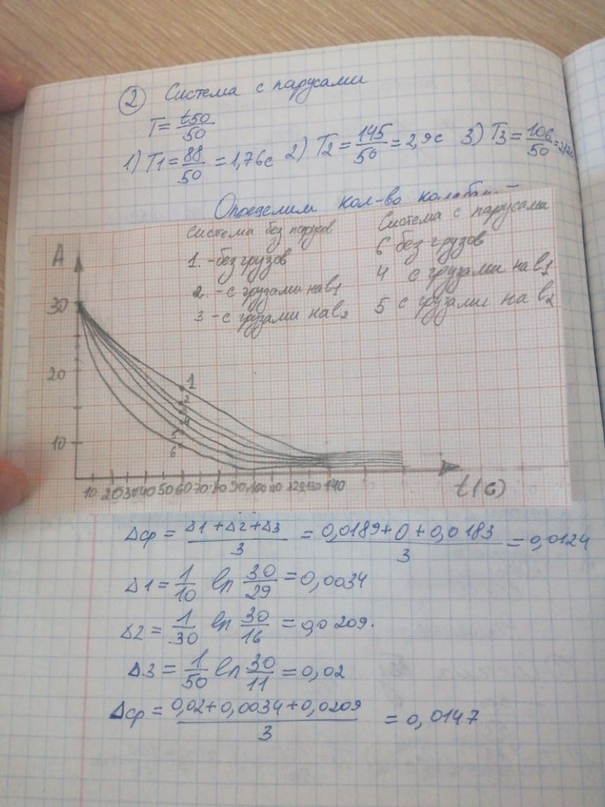 ② Система с парусами
T = t50/50
1) T1 = 88/50 = 1,76с 2) T2 = 145/50 = 2,9с 3) T3 = 106/50
Определим кол-во
A
Система без парусов
1. -без грузов
2. - с грузами на b1
3 - с грузами на b2
Система с парусами
6 без грузов
4 с грузами на b1
5 с грузами на b2
30
20
10
1
2
3
4
5
6
10 20 30 40 50 60 70 80 90 100 110 120 130 140
t(c)
Δср = Δ1+Δ2+Δ3/3 = 0,0189+0+0,0183/3 = 0,0124
Δ1 = 1/10 ln 30/29 = 0,0034
Δ2 = 1/30 ln 30/16 = 0,0209.
Δ3 = 1/50 ln 30/11 = 0,02
Δср = 0,02+0,0034+0,0209/3 = 0,0147